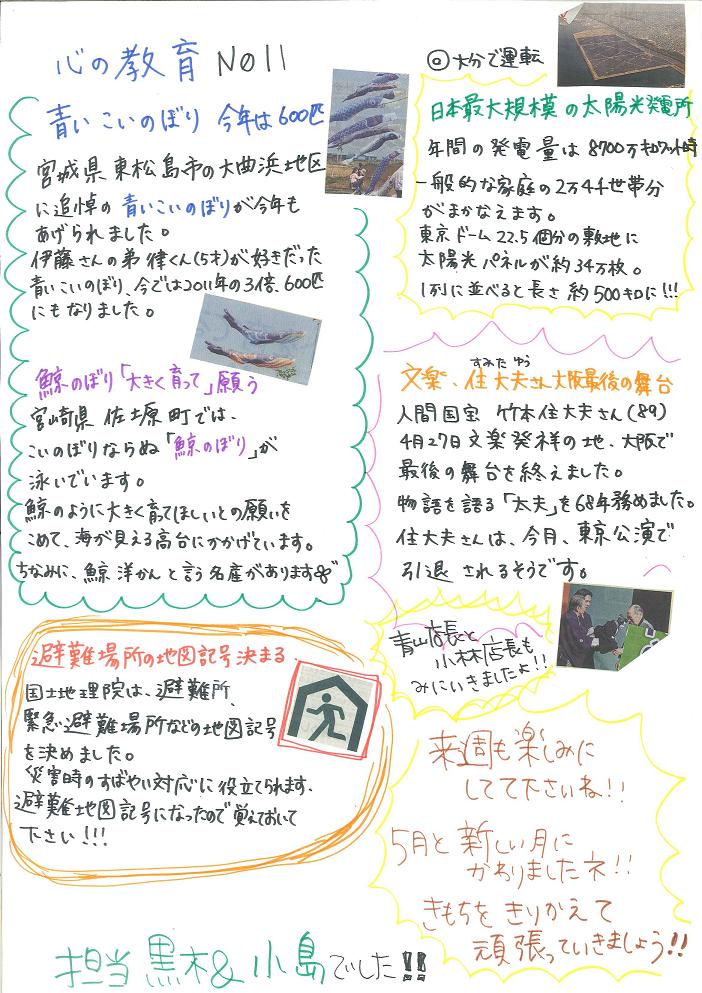 心の教育 NO11
青いこいのぼり 今年は600匹
宮城県東松島市の大曲浜地区
に追悼の青いこいのぼりが今年も
あげられました。
伊藤さんの弟律くん(5才)が好きだった
青いこいのぼり、今では2011年の3倍、600匹
にもなりました。
鯨のぼり「大きく育って」願う
宮崎県 佐土原町では、
こいのぼりならぬ「鯨のぼり」が
泳いでいます。
鯨のように大きく育ってほしいとの願いを
こめて、海が見える高台にかかげています。
ちなみに、鯨洋かんと言う名産があります
避難場所の地図記号決まる
国土地理院は、避難所、
緊急避難場所などの地図記号
を決めました。
災害時のすばやい対応に役立てられます。
避難地図記号になったので覚えておいて
下さい!!!
◎大分で運転
日本最大規模の太陽光発電所
年間の発電量は8700万キロワット時
一般的な家庭の2万4千世帯分
がまかなえます。
東京ドーム22.5個分の敷地に
太陽光パネルが約34万枚。
1列に並べると長さ約500キロに!!!
すみたゆう
文楽、住大夫さん大阪最後の舞台
人間国宝 竹本住大夫さん(89)
4月27日文楽発祥の地、大阪で
最後の舞台を終えました。
物語を語る「太夫」を68年務めました。
住大夫さんは、今月、東京公演で
引退されるそうです。
青山店長と
小林店長も
みにいきましたよ!!
来週も楽しみに
してて下さいね!!
5月と新しい月に
かわりましたネ!!
きもちをきりかえて
頑張っていきましょう!!
担当 黒木&小島でした!!